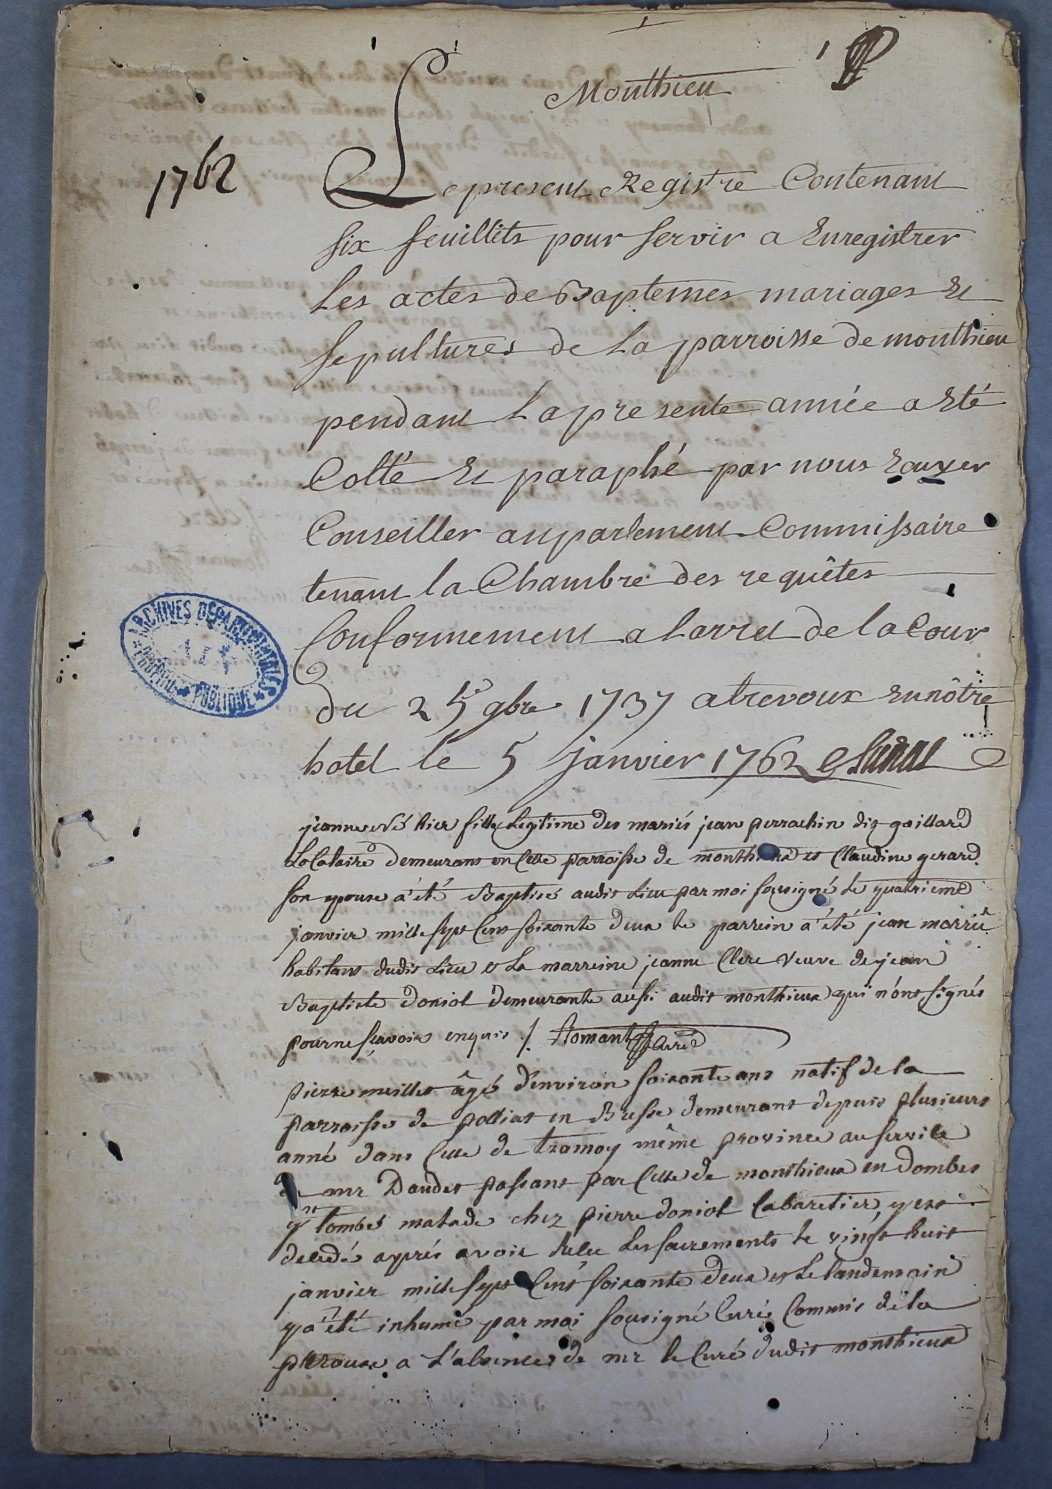 Monthieu
1762
Le present Registre Contenant
six feuillits pour servir a Enregistrer
les actes de Baptemes mariages Et
sepultures de la parroisse de monthieu
pendant la presente année a Eté
Cotté Et paraphé par nous
Conseiller au parlement Commissaire
tenant la Chambre des requêtes
Conformement a larret de la Cour
du 25e 9bre 1737 a trevoux En nôtre
hotel le 5 janvier 1762
ARCHIVES DÉPARTEMENTALES
PROPRIÉTÉ PUBLIQUE
jeanne fille legitime des mariés jean perrachin dit gaillard
Locataire demeurans en Cette parroisse de monthieux et Claudine gerard
son epouse a été Baptisé audit Lieu par moi sousigné le quatrieme
janvier mille sept Cens soixante deux le parrein a été jean
habitant dudit Lieu et La marreine jeanne Clere veuve de jean
Baptiste doniol demeurante aussi audit monthieux qui n'ont signés
pour ne sçavoir enquis /. Romant Curé
pierre meillet âgé d'environ soixante ans natif de la
parroisse de polliat en Bresse demeurant depuis plusieurs
anné dans Celle de tramoy même province au service
de mr Daudet passant par Celle de monthieux en dombes
tombés malade chez pierre doniol Cabaretier, y est
decedé aprés avoir Reçu Les sacrements le vingt huit
janvier mille sept Cens soixante deux et Le landemain
y a été inhumé par moi sousigné Curé Commis de la
perouse a L'absence de mr le Curé dudit monthieux